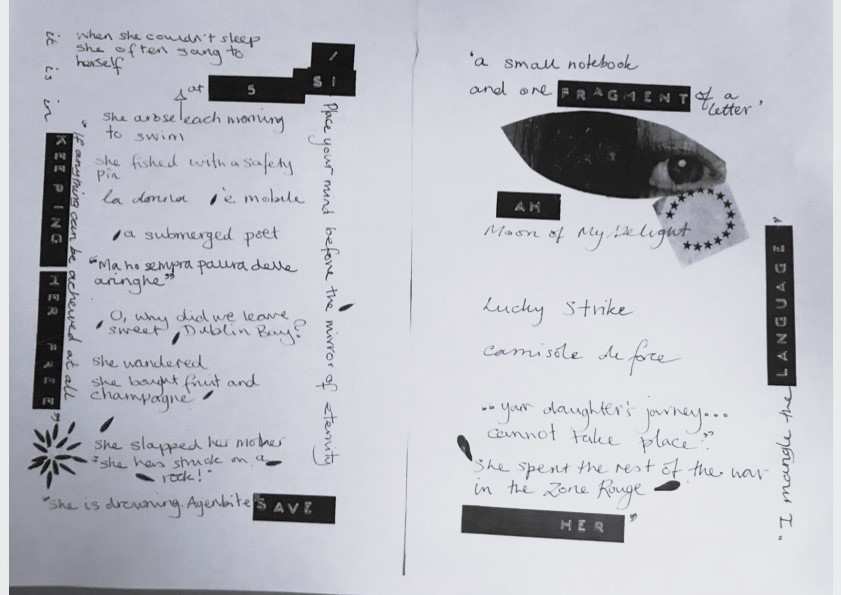 when she couldn't sleep
she often sang to
herself
/
SI
at 5
she arose each morning
to swim
she fished with a safety
pin
la donna 'e mobile
a submerged poet
"Ma ho sempra paura delle
aringhe"
O, why did we leave
sweet Dublin Bay?
she wandered
she bought fruit and
champagne
she slapped her mother
"she has struck on a
rock!"
"she is drowning. Agenbite SAVE
it is in
KEEPING HER FREE
"If anything can be achieved at all"
Place your mind before the mirror of eternity
'a small notebook
and one FRAGMENT of a
letter'
AH
Moon of My Delight
Lucky Strike
camisole de force
"your daughter's journey...
cannot take place."
she spent the rest of the war
in the Zone Rouge
HER"
"I mangle the LANGUAGE"